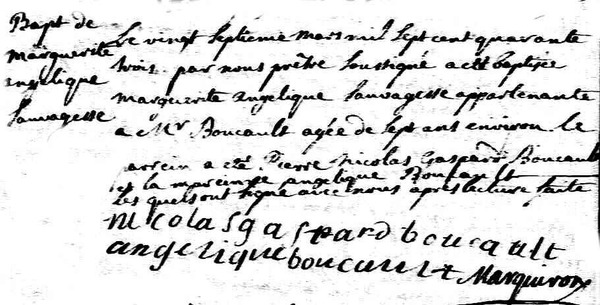 Bapt de
marguerite
angelique
Sauvagesse
Le vingt Septieme mars mil Sept cent quarante
trois par nous prêtre Soussigné a eté baptisée
marguerite angelique Sauvagesse appartenante
a Mr Boucault agée de Sept ans environ le
parein a eté Pierre Nicolas Gaspard Boucault
et la mareine angelique Boucault
Lesquels ont signé avec nous apres lecture faite
nicolas gaspard boucault
angelique boucault Marquiron